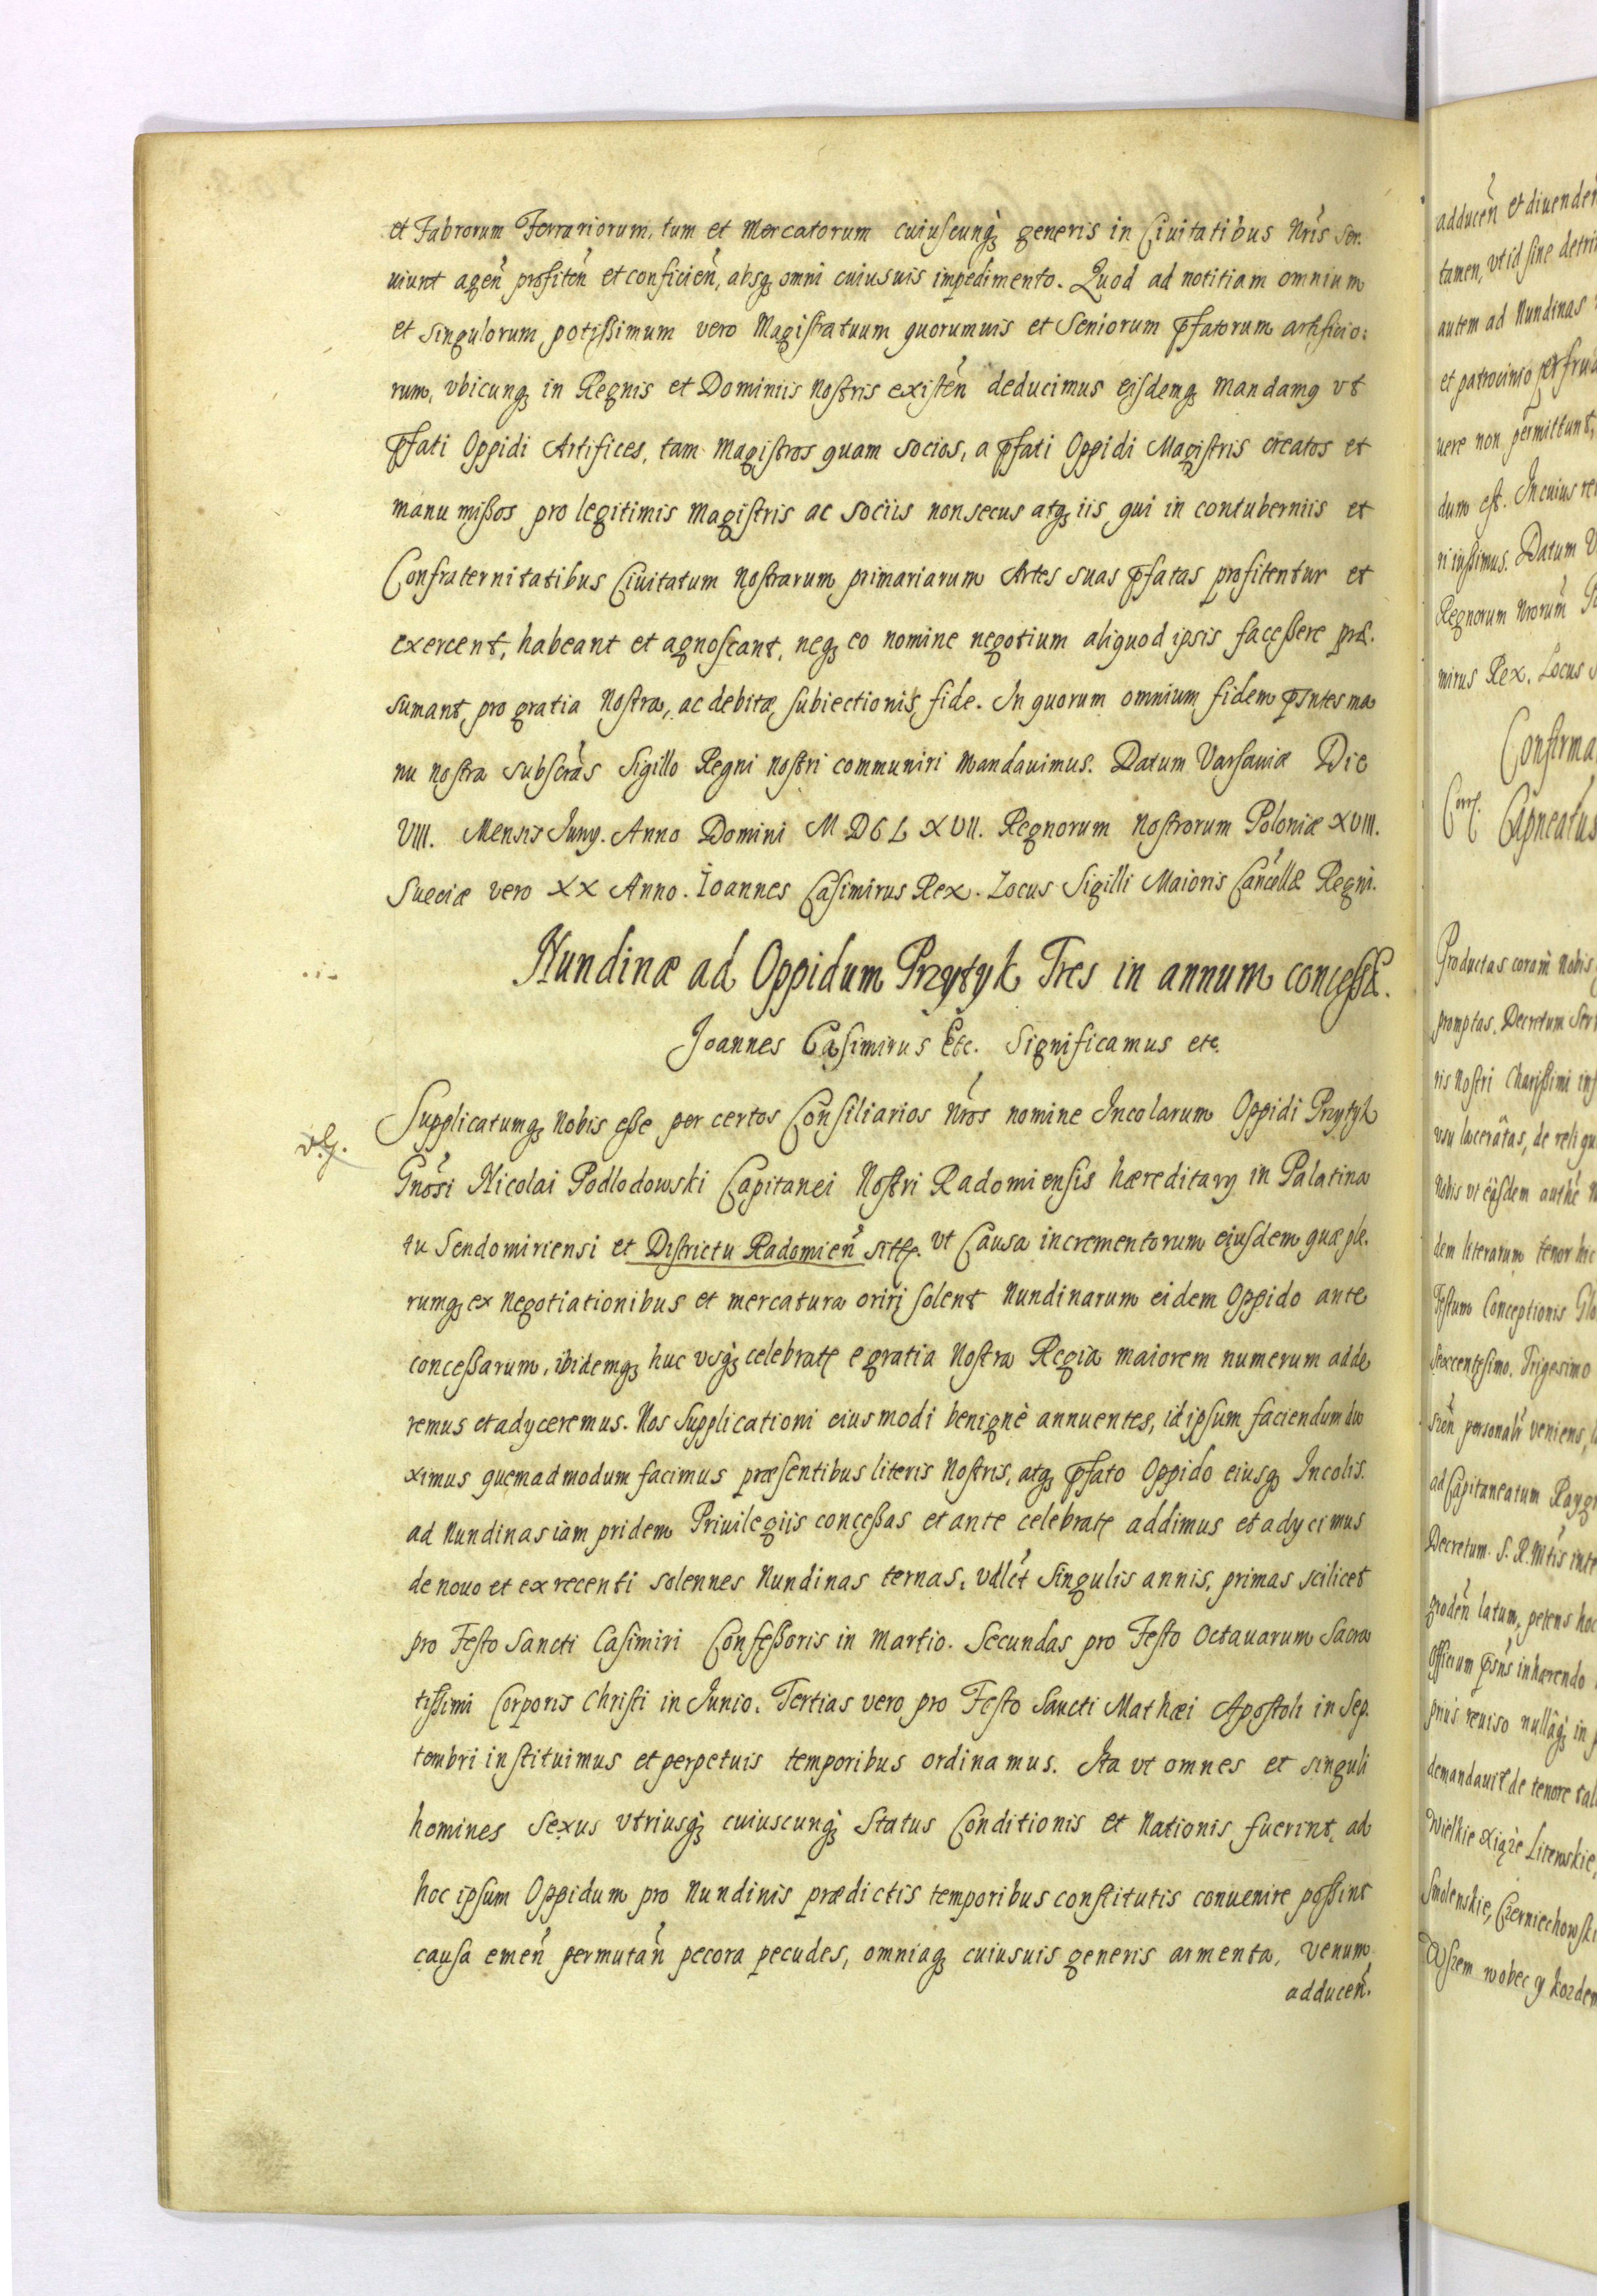 et Fabrorum Ferrariorum, tum et Mercatorum cuiuscunq; generis in Ciuitatibus Nris ser.
uiunt agen̄ profiten̄ et conficien̄, absq; omni cuiusuis impedimento. Quod ad notitiam omnium
et singulorum potissimum vero Magistratuum quorumuis et Seniorum p̄fatorum artificio:
rum, vbicunq; in Regnis et Dominiis Nostris existen̄ deducimus eisdemq; mandamq vt
p̄fati Oppidi Artifices, tam Magistros quam socios, a p̄fati Oppidi Magistris creatos et
manu missos pro legitimis Magistris ac sociis non secus atq; iis qui in contuberniis et
Confraternitatibus Ciuitatum Nostrarum primariarum Artes suas p̄fatas profitentur et
exercent, habeant et agnoscant, neq; eo nomine negotium aliquod ipsis facessere præ.
sumant pro gratia Nostra, ac debitæ subiectionis fide. In quorum omnium fidem p̄sntes ma
nu nostra subscrās Sigillo Regni nostri communiri mandauimus. Datum Varsauiæ Die
VIII. Mensis Juny. Anno Domini M D C L XVII. Regnorum Nostrorum Poloniæ XVIII.
Sueciæ vero XX Anno. Ioannes Casimirus Rex. Locus Sigilli Maioris Cancellæ Regni.
Nundinæ ad Oppidum Przytyk Tres in annum concessæ.
Joannes Casimirus Etc. Significamus etc.
Supplicatumq; Nobis esse per certos Consiliarios Nros nomine Incolarum Oppidi Przytyk
Gnosi Nicolai Podlodowski Capitanei Nostri Radomiensis hæreditary in Palatina
tu Sendomiriensi et Districtu Radomien̄ siti. vt Causa incrementorum eiusdem quæ ple.
rumq; ex negotiationibus et mercatura oriri solent Nundinarum eidem Oppido ante
concessarum, ibidemq; huc vsq; celebratę e gratia Nostra Regia maiorem numerum adde
remus et adyceremus. Nos Supplicationi eiusmodi benignè annuentes, id ipsum faciendum du
ximus quemadmodum facimus præsentibus literis Nostris, atq; p̄fato Oppido eiusq; Incolis.
ad Nundinas iam pridem Priuilegiis concessas et ante celebratę addimus et adycimus
de nouo et ex recenti solennes Nundinas ternas, vdlēt singulis annis, primas scilicet
pro Festo Sancti Casimiri Confessoris in Martio. Secundas pro Festo Octauarum Sacra
tissimi Corporis Christi in Junio. Tertias vero pro Festo Sancti Mathæi Apostoli in Sep.
tembri instituimus et perpetuis temporibus ordinamus. Ita vt omnes et singuli
homines Sexus vtriusq; cuiuscunq; Status Conditionis et Nationis fuerint, ad
hoc ipsum Oppidum pro Nundinis prædictis temporibus constitutis conuenire possint
causa emen̄ permutan̄ pecora pecudes, omniaq; cuiusuis generis armenta, venum
adducen̄.
adducen̄ et diuenden̄
tamen, vt id sine
autem ad Nundinas
et patrocinio
uere non permittunt,
dum est. In cuius
ri iussimus. Datum
Regnorum Nrorum
mirus Rex. Locus
Confirma
Capneatus
Productas coram Nobis
promptas. Decretum
ris Nostri Charissimi
vsu laceratas, de
Nobis vt
dem literarum tenor hic
Festum Conceptionis
Sexcentesimo. Trigesimo
veniens,
ad Capitaneatum
Decretum. S. R. Mtis
groden̄ latum, petens hoc
Officium p̄sns inhærendo
prius reuiso nullāq; in
demandauit de tenore
Wielkie Xiąże Litewskie,
Smolenskie,
Wszem wobec y